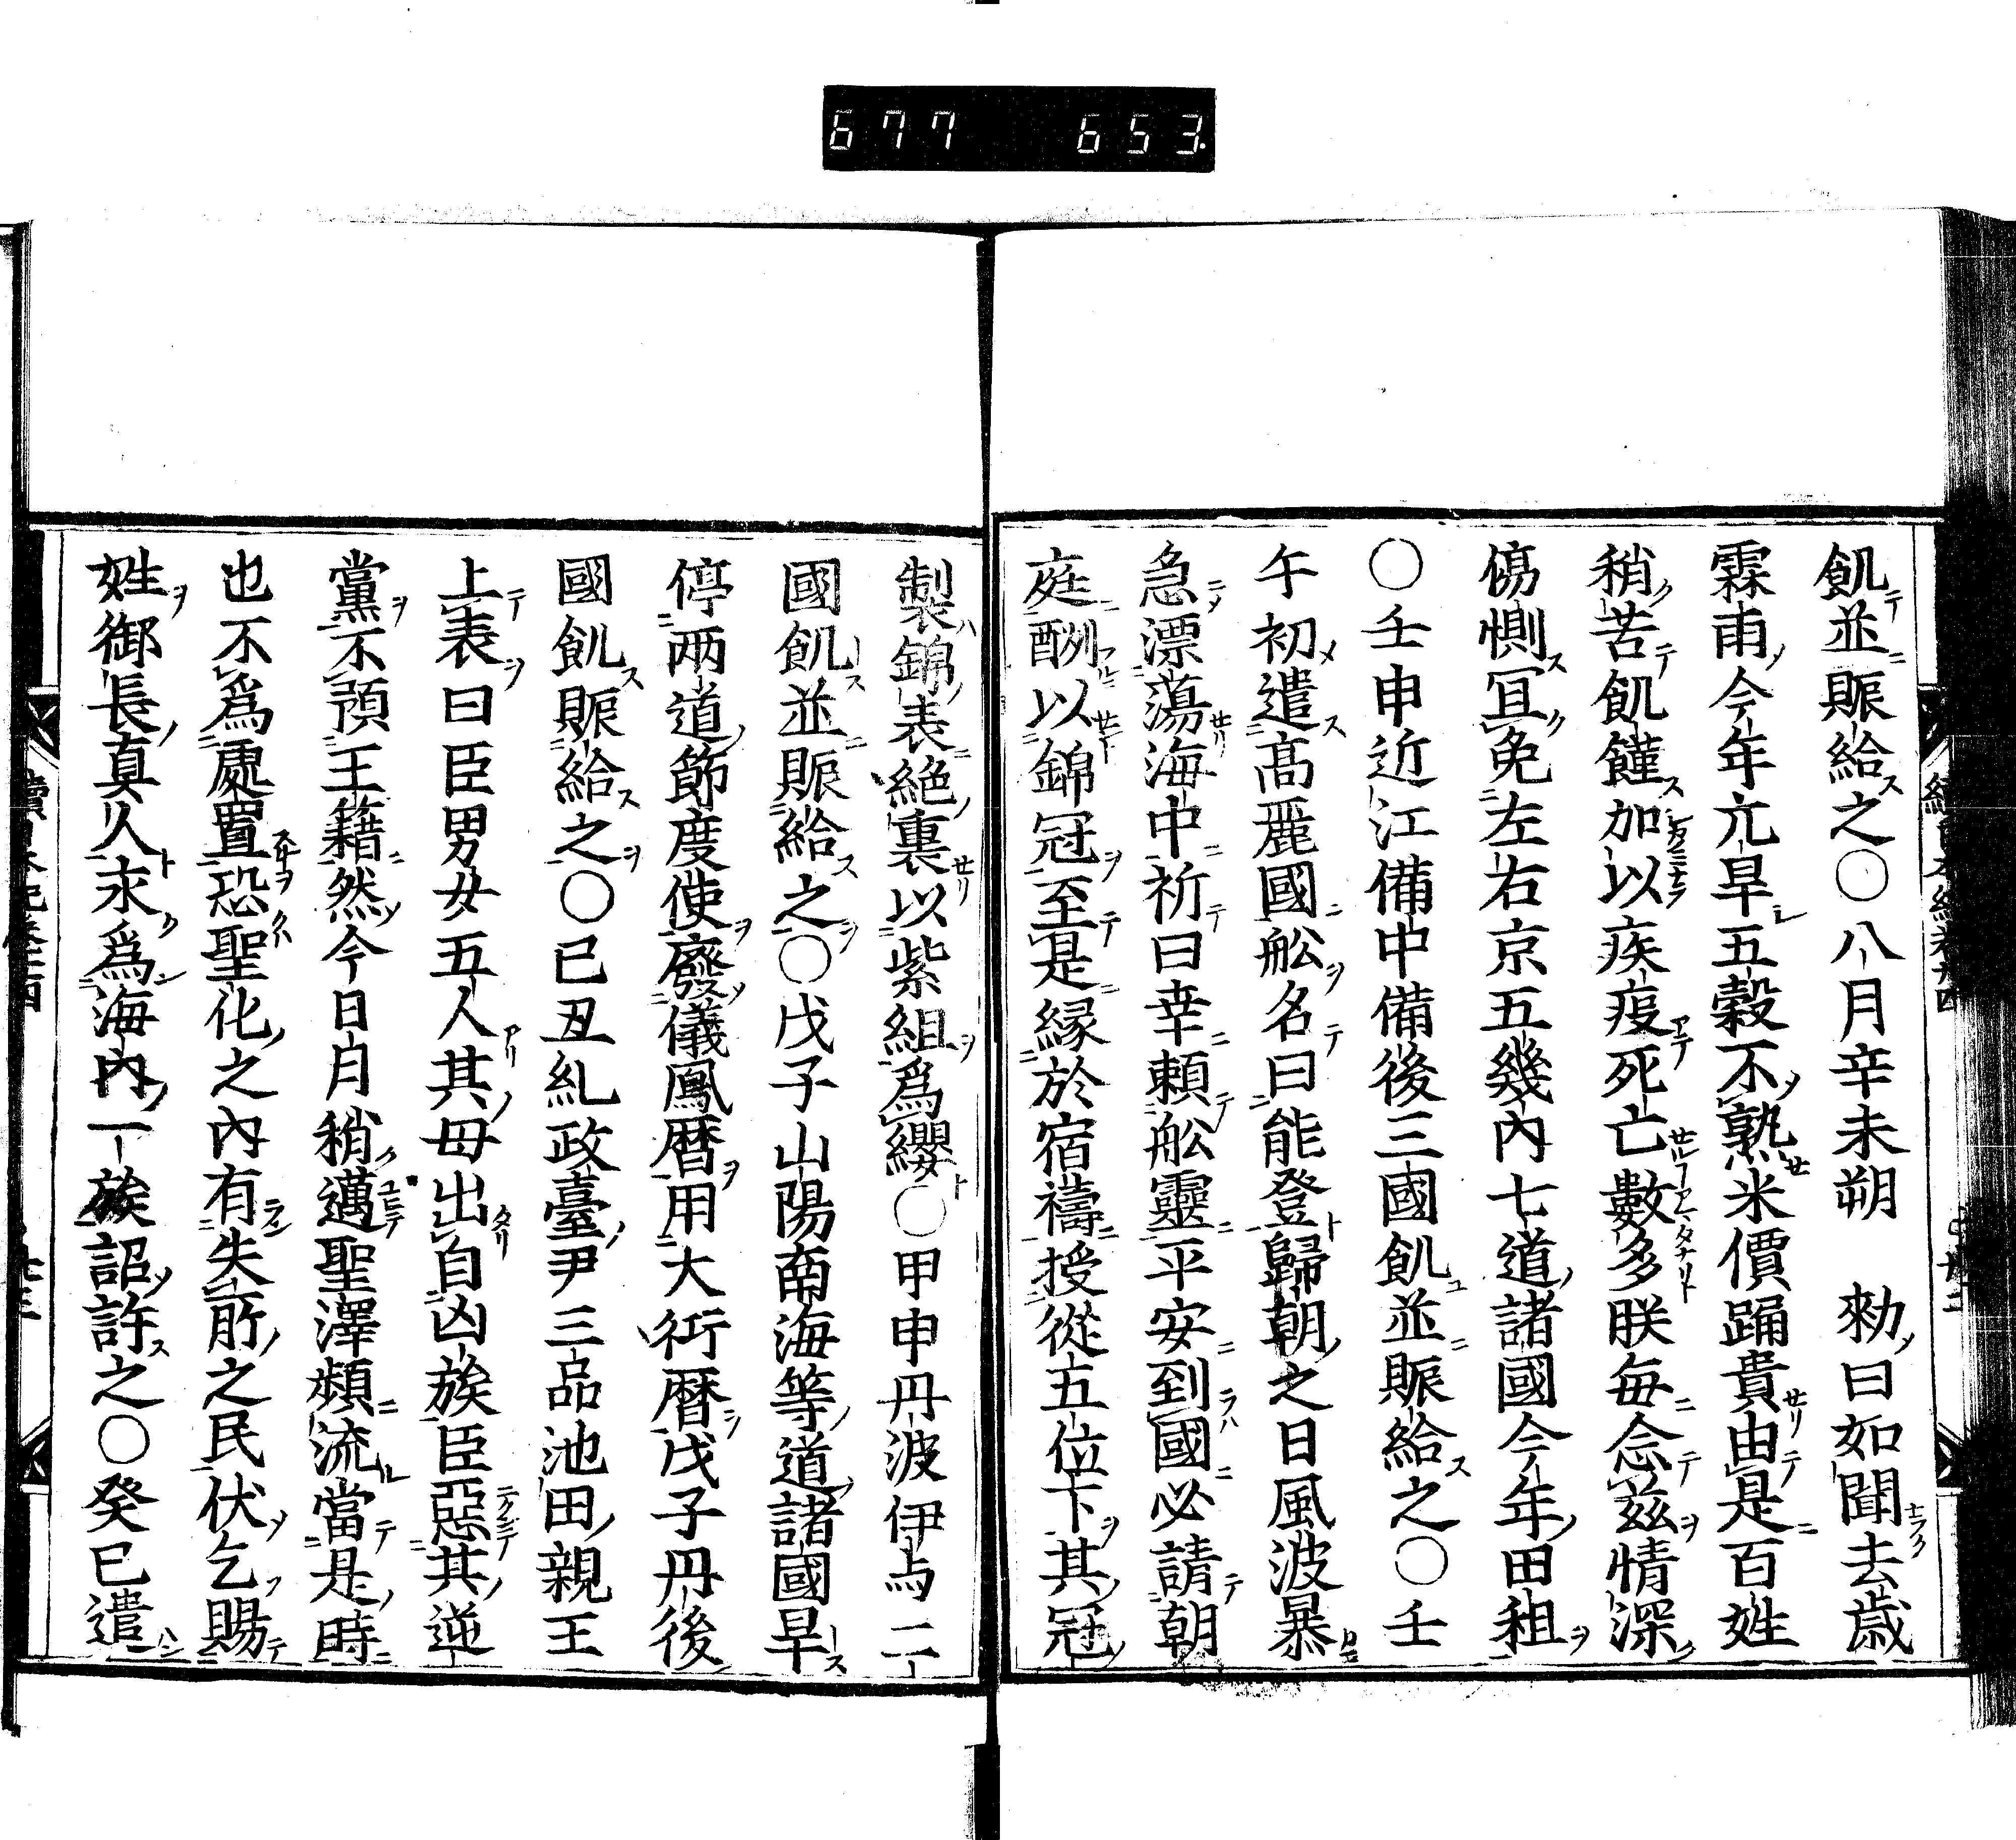 677 653
飢並賑給之〇八月辛未朔 勑曰如聞去歳
霖雨今年亢旱五穀不熟米價踊貴由是百姓
稍苦飢饉加以疾疫死亡數多朕毎念兹情深
傷惻冝免左右京五幾内七道諸國今年田租
〇壬申近江備中備後三國飢並賑給之〇壬
午初遣髙麗國舩名曰能登歸朝之日風波暴
急漂蕩海中祈曰幸頼舩靈平安到國必請朝
庭酬以錦冠至是縁於宿禱授從五位下其冠
製錦表絁裏以紫組爲纓〇甲申丹波伊与二
國飢並賑給之〇戊子山陽南海等道諸國旱
停两道節度使廢儀鳳暦用大衍暦戊子丹後
國飢賑給之〇已丑糺政臺尹三品池田親王
上表曰臣男女五人其母出自凶族臣惡其逆
黨不預王籍然今日月稍邁聖澤頻流當是時
也不爲處置恐聖化之内有失所之民伏乞賜
姓御長真人求爲海内一族詔許之〇癸巳遣